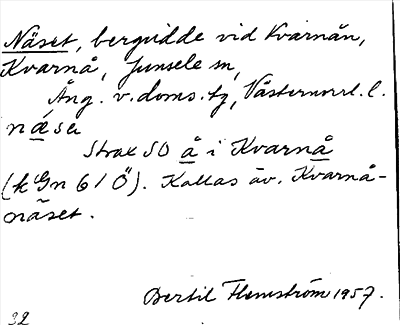 Näset, bergudde vid Kvarnån,
Kvarnå, Junsele sn,
Ång. v. doms. tg, Västernorrl. l.
næ̀sa
Strax SO å i Kvarnå
(k Gn 61 Ö). Kallas äv. Kvarnå-
näset.
Bertil Flemström 1957.
32